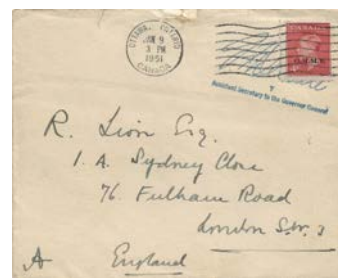 OTTAWA, ONTARIO
JAN 9
3 PM
1951
CANADA
O.H.M.S.
Assistant Secretary to the Governor General
R. Lion Esq.
1. A. Sydney Close
76. Fulham Road
London S.W. 3
A England